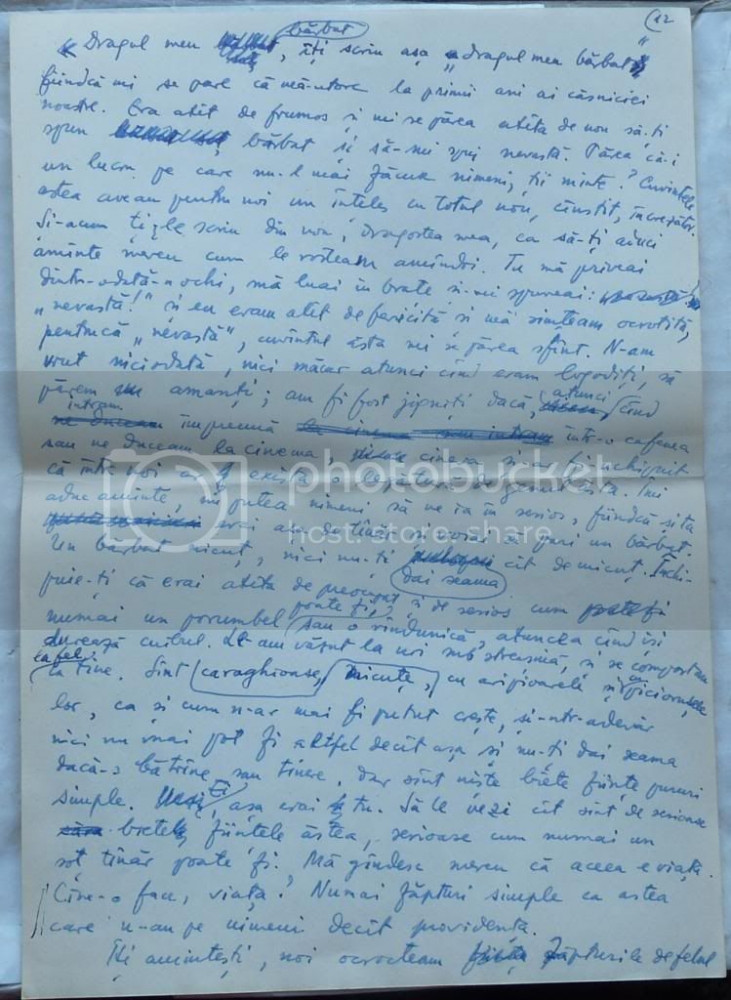 12
bărbat
„Dragul meu , îți scriu așa „dragul meu bărbat”
fiindcă mi se pare că mă-ntorc la primii ani ai căsniciei
noastre. Era atît de frumos și mi se părea atîta de nou să-ți
spun bărbat și să-mi spui nevastă. Părea că-i
un lucru pe care nu-l mai făcuse nimeni, ții minte? Cuvintele
astea aveau pentru noi un înțeles cu totul nou, cinstit, încrezător.
Și-acum ți le scriu din nou, dragostea mea, ca să-ți aduci
aminte mereu cum le rosteam amîndoi. Tu mă priveai
dintr-odată-n ochi, mă luai în brațe și-mi spuneai:
„nevastă!” și eu eram atît de fericită și mă simțeam ocrotită,
pentrucă „nevastă”, cuvîntul ăsta mi se părea sfînt. N-am
vrut niciodată, nici măcar atunci cînd eram logodiți, să
părem amanți; am fi fost jigniți dacă, atunci cînd
intram împreună într-o cafenea
sau ne duceam la cinema, cineva și-ar fi închipuit
că între noi ar exista o legătură de genul ăsta. Îmi
aduc aminte, nu putea nimeni să ne ia în serios, fiindcă și tu
erai atît de tînăr și voiai să pari un bărbat.
Un bărbat micuț, nici nu-ți dai seama cît de micuț. Închi-
puie-ți că erai atîta de preocupat și de serios cum poate fi
numai un porumbel sau o rîndunică, atuncea cînd își
durează cuibul. Le-am văzut la noi sub streașină, și se comportau
la fel ca tine. Sînt caraghioase, micuțe, cu aripioarele și cu piciorușele
lor, ca și cum n-ar mai fi putut crește, și-ntr-adevăr
nici nu mai pot fi altfel decît așa și nu-ți dai seama
dacă-s bătrîne sau tinere, dar sînt niște biete ființe pururi
simple. așa erai și tu. Să le vezi cît sînt de serioase
bietele ființele ăstea, serioase cum numai un
soț tînăr poate fi. Mă gîndesc mereu că aceea e viața.
Cine-o face, viața? Numai făpturi simple ca astea
care n-au pe nimeni decît providența.
Îți amintești, noi ocroteam făpturile de felul
photobucket
host. store. share.